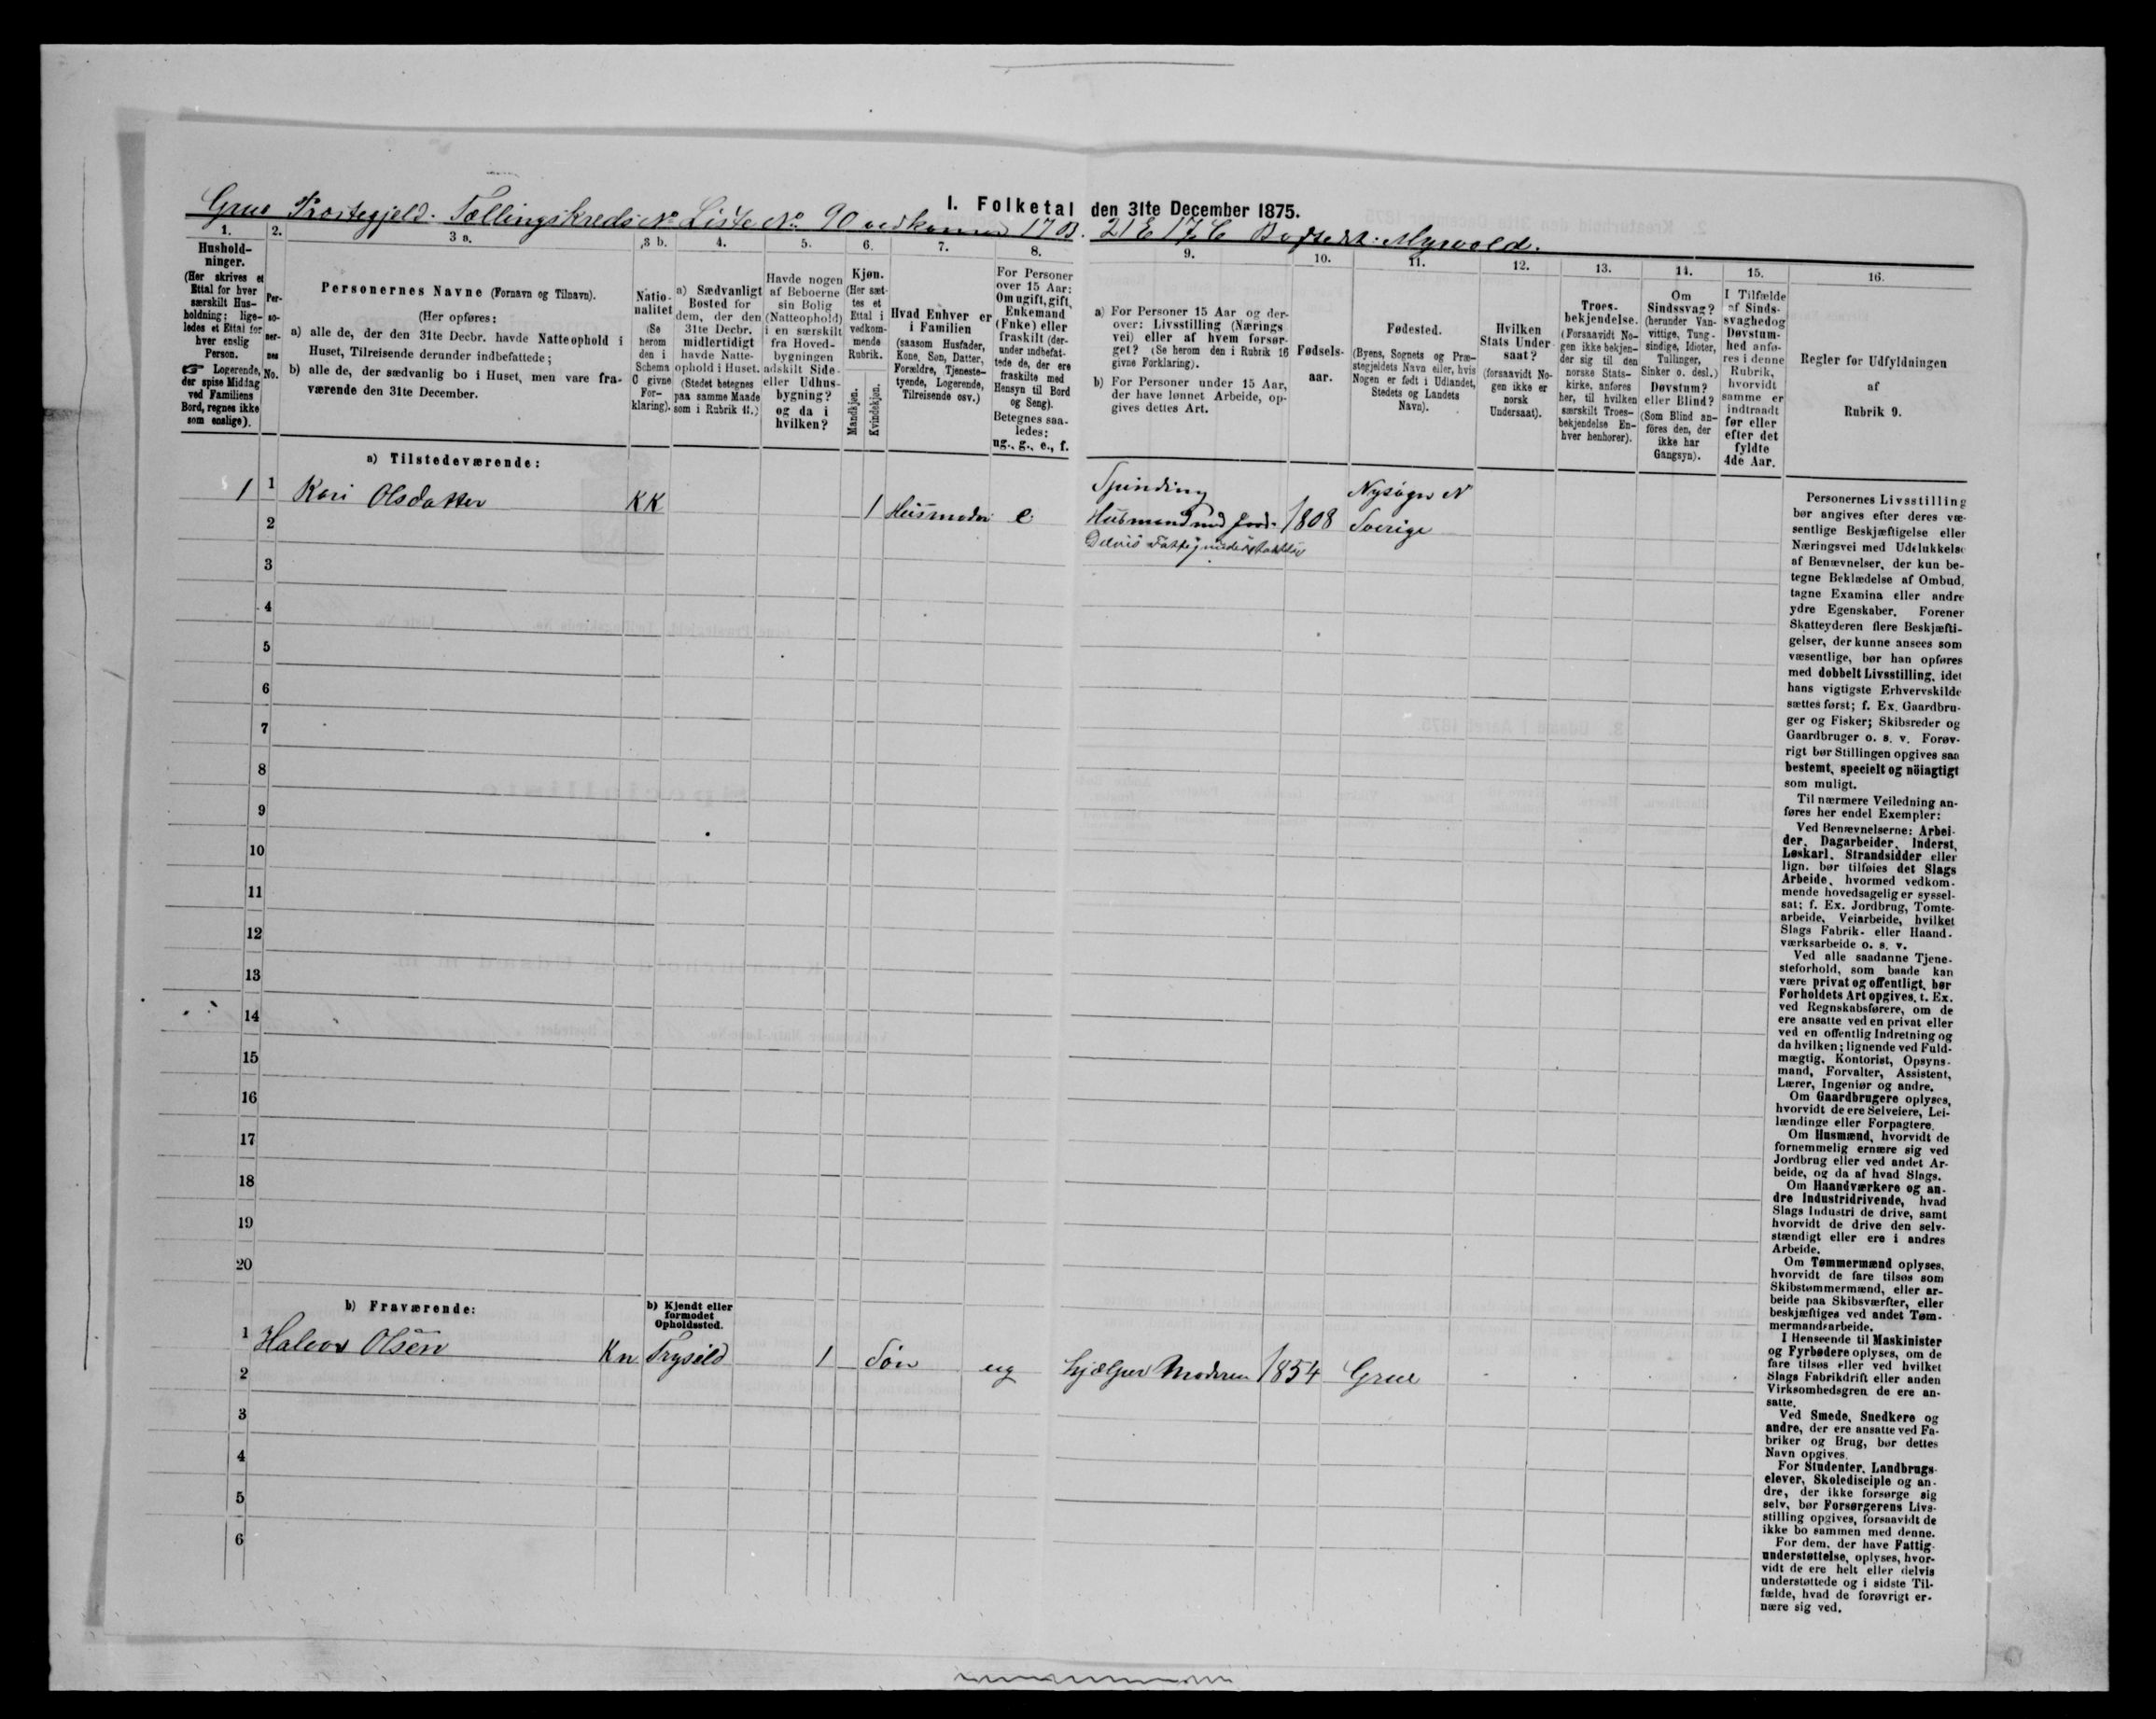 I. Folketal den 31te December 1875.
Grue Præstegjeld. Tællingskreds No. Liste No. 90 vedkommer 17 B. 21 E 17 C Bostedet: Myrvold.
1. 2. 3 a. 3 b. 4. 5. 6. 7. 8. 9. 10. 11. 12. 13. 14. 15. 16.
Hushold-
ninger.
(Her skrives et
Ettal for hver
særskilt Hus-
holdning; lige-
ledes et Ettal for
hver enslig
Person.
☞ Logerende,
der spise Middag
ved Familiens
Bord, regnes ikke
som enslige).
Per-
so-
ner-
nes
No.
Personernes Navne (Fornavn og Tilnavn).
(Her opføres:
a) alle de, der den 31te Decbr. havde Natteophold i
Huset, Tilreisende derunder indbefattede;
b) alle de, der sædvanlig bo i Huset, men vare fra-
værende den 31te December.
Natio-
nalitet
(Se
herom
den i
Schema
C givne
For-
klaring).
a) Sædvanligt
Bosted for
dem, der den
31te Decbr.
midlertidigt
havde Natte-
ophold i Huset.
(Stedet betegnes
paa samme Maade
som i Rubrik 11.)
Havde nogen
af Beboerne
sin Bolig
(Natteophold)
i en særskilt
fra Hoved-
bygningen
adskilt Side-
eller Udhus-
bygning?
og da i
hvilken?
Kjøn.
(Her sæt-
tes et
Ettal i
vedkom-
mende
Rubrik.
Mandkjøn.
Kvindekjøn.
Hvad Enhver er
i Familien
(saasom Husfader,
Kone, Søn, Datter,
Forældre, Tjeneste-
tyende, Logerende,
Tilreisende osv.)
For Personer
over 15 Aar:
Om ugift, gift,
Enkemand
(Enke) eller
fraskilt (der-
under indbefat-
tede de, der ere
fraskilte med
Hensyn til Bord
og Seng).
Betegnes saa-
ledes:
ug., g., e., f.
a) For Personer 15 Aar og der-
over: Livsstilling (Nærings
vei) eller af hvem forsør-
get? (Se herom den i Rubrik 16
givne Forklaring).
b) For Personer under 15 Aar,
der have lønnet Arbeide, op-
gives dettes Art.
Fødsels-
aar.
Fødested.
(Byens, Sognets og Præ-
stegjeldets Navn eller, hvis
Nogen er født i Udlandet,
Stedets og Landets
Navn).
Hvilken
Stats Under
saat?
(forsaavidt No-
gen ikke er
norsk
Undersaat).
Troes-
bekjendelse.
(Forsaavidt No-
gen ikke bekjen-
der sig til den
norske Stats-
kirke, anføres
her, til hvilken
særskilt Troes-
bekjendelse En-
hver henhører).
Om
Sindssvag?
(herunder Van-
vittige, Tung-
sindige, Idioter,
Tullinger,
Sinker o. desl.)
Døvstum?
eller Blind?
(Som Blind an-
føres den, der
ikke har
Gangsyn).
I Tilfælde
af Sinds-
svaghedog
Døvstum-
hed anfø-
res i denne
Rubrik,
hvorvidt
samme er
indtraadt
før eller
efter det
fyldte
4de Aar.
Regler for Udfyldningen
af
Rubrik 9.
a) Tilstedeværende:
1 1 Kari Olsdatter KK 1 Husmoder e. Spinding Nysogn N
2 Husmand med Jord. 1808 Sverige
Delvis Fattigunderstøttet
3
4
5
6
7
8
9
10
11
12
13
14
15
16
17
18
19
20
b) Fraværende:
b) Kjendt eller
formodet
Opholdssted.
1 Halvor Olsen Kn Trysild 1 Søn ug hjælper Moderen 1854 Grue
2
3
4
5
6
Personernes Livsstilling
bør angives efter deres væ-
sentlige Beskjæftigelse eller
Næringsvei med Udelukkelse
af Benævnelser, der kun be-
tegne Beklædelse af Ombud,
tagne Examina eller andre
ydre Egenskaber. Forener
Skatteyderen flere Beskjæfti-
gelser, der kunne ansees som
væsentlige, bør han opføres
med dobbelt Livsstilling, idet
hans vigtigste Erhvervskilde
sættes først; f. Ex. Gaardbru-
ger og Fisker; Skibsreder og
Gaardbruger o. s. v. Forøv-
rigt bør Stillingen opgives saa
bestemt, specielt og nöiagtigt
som muligt.
Til nærmere Veiledning an-
føres her endel Exempler:
Ved Benævnelserne: Arbei-
der, Dagarbeider, Inderst,
Løskarl, Strandsidder eller
lign. bør tilføies det Slags
Arbeide, hvormed vedkom-
mende hovedsagelig er syssel-
sat; f. Ex. Jordbrug, Tomte-
arbeide, Veiarbeide, hvilket
Slags Fabrik- eller Haand-
værksarbeide o. s. v.
Ved alle saadanne Tjene-
steforhold, som baade kan
være privat og offentligt, bør
Forholdets Art opgives, t. Ex.
ved Regnskabsførere, om de
ere ansatte ved en privat eller
ved en offentlig Indretning og
da hvilken; lignende ved Fuld-
mægtig, Kontorist, Opsyns-
mand, Forvalter, Assistent,
Lærer, Ingeniør og andre.
Om Gaardbrugere oplyses,
hvorvidt de ere Selveiere, Lei-
lændinge eller Forpagtere.
Om Husmænd, hvorvidt de
fornemmelig ernære sig ved
Jordbrug eller ved andet Ar-
beide, og da af hvad Slags.
Om Haandværkere og an-
dre Industridrivende, hvad
Slags Industri de drive, samt
hvorvidt de drive den selv-
stændigt eller ere i andres
Arbeide.
Om Tømmermænd oplyses,
hvorvidt de fare tilsøs som
Skibstømmermænd, eller ar-
beide paa Skibsværfter, eller
beskjæftiges ved andet Tøm-
mermandsarbeide.
I Henseende til Maskinister
og Fyrbødere oplyses, om de
fare tilsøs eller ved hvilket
Slags Fabrikdrift eller anden
Virksomhedsgren de ere an-
satte.
Ved Smede, Snedkere og
andre, der ere ansatte ved Fa-
briker og Brug, bør dettes
Navn opgives.
For Studenter, Landbrugs-
elever, Skoledisciple og an-
dre, der ikke forsørge sig
selv, bør Forsørgerens Livs-
stilling opgives, forsaavidt de
ikke bo sammen med denne.
For dem, der have Fattig-
understøttelse, oplyses, hvor-
vidt de ere helt eller delvis
understøttede og i sidste Til-
fælde, hvad de forøvrigt er-
nære sig ved.